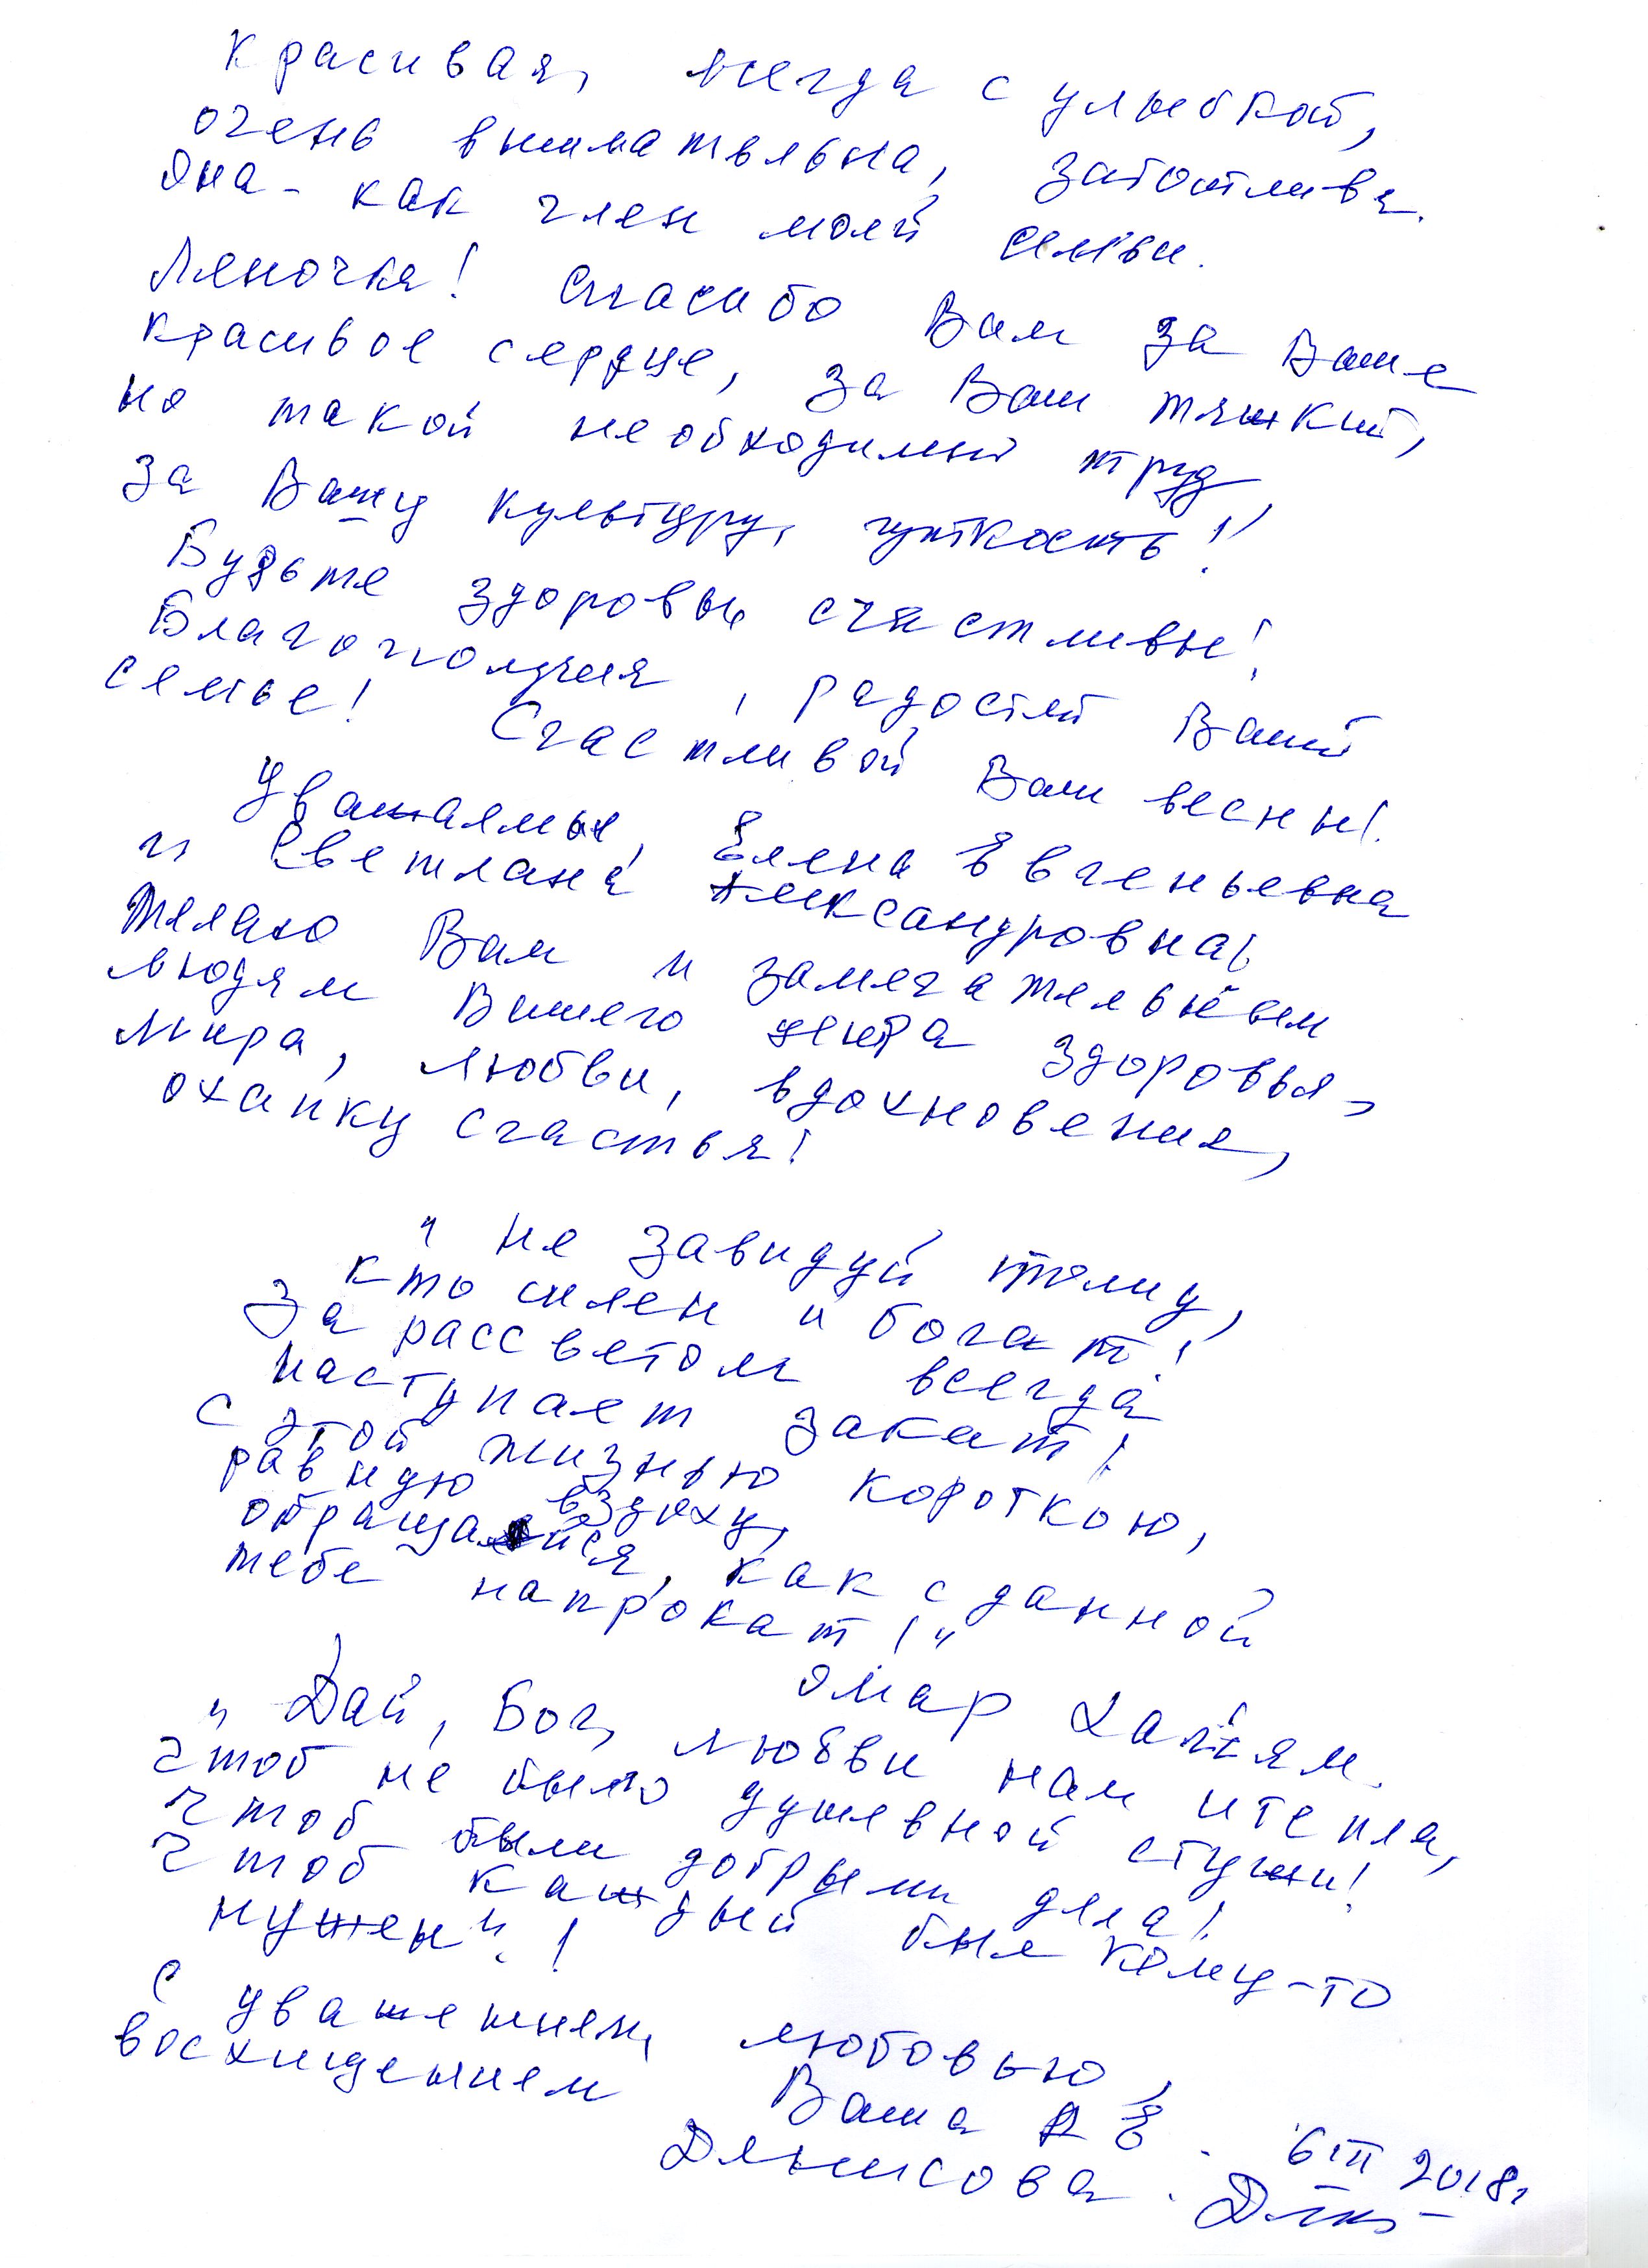 Красивая, всегда с улыбкой,
очень внимательна, заботлива.
Она - как член моей семьи.
Леночка! Спасибо Вам за Ваше
красивое сердце, за Ваш тяжкий,
но такой необходимый труд,
за Вашу культуру, чуткость!
Будьте здоровы, счастливы!
Благополучия, радостей Вашей
семье! Счастливой Вам весны!
Уважаемые, Елена Евгеньевна
и Светлана Александровна!
Желаю Вам и замечательным
людям Вашего центра здоровья,
мира, любви, вдохновения,
охапку счастья!
" Не завидуй тому,
кто силен и богат!
За рассветом всегда
наступает закат!
С этой жизнью короткою,
равную вздоху,
обращайся, как с данной
тебе напрокат!"
Омар Хайям.
" Дай, Бог, любви нам и тепла,
Чтоб не было душевной стужи!
Чтоб были добрыми дела!
Чтоб каждый был кому-то
нужен"!
С уважением, любовью,
восхищением
Ваша Е.
Денисова. 6 III 2018г